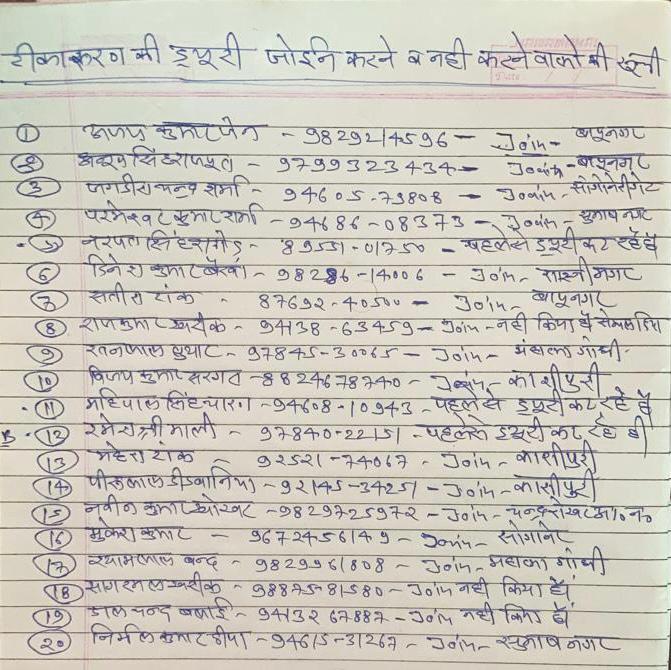 टीकाकरण की ड्यूटी जोइन करने व नही करने वालो की सूची
1 अजय कुमार जैन - 9829214596 - Join - बापूनगर
2 सिंह राजपूत - 9799323434 - Join - बापूनगर
3 जगदीश चन्द्र शर्मा - 94605-79808 - Join - सांगानेरी गेट
4 परमेश्वर कुमार शर्मा - 94686-08373 - Join - सुभाष नगर
5 नरपत सिंह राठौड़ - 89551-01750 - पहले से ड्यूटी कर रहे हैं
6 दिनेश कुमार बैरवा - 98286-14006 - Join - शास्त्री नगर
7 सतीश टांक - 87692-40500 - Join - बापूनगर
8 राजकुमार खटीक - 94138-63459 - Join - नही किया है
9 रतनलाल सुथार - 97845-30065 - Join -
10 विजय कुमार सरगरा - 8824678740 - Join - काशीपुरी
11 महिपाल सिंह चारण - 94608-10943 - पहले से ड्यूटी कर रहे हैं
12 रमेश माली - 97840-22151 - पहले से ड्यूटी कर रहे है
13 महेश टांक - 92521-74067 - Join - काशीपुरी
14 डीडवानिया - 92145-34251 - Join - काशीपुरी
15 नवीन कुमार खोखर - 9829725972 - Join - चन्द्रशेखर आ० न०
16 मुकेश कुमार - 9672456149 - Join -
17 श्यामलाल चन्द - 9829961808 - Join -
18 सागरमल खटीक - 98875-81580 - Join नही किया है
19 लाल चन्द बलाई - 9413267887 - Join नही किया है
20 निर्मल कुमार - 94615-31267 - Join - सुभाष नगर